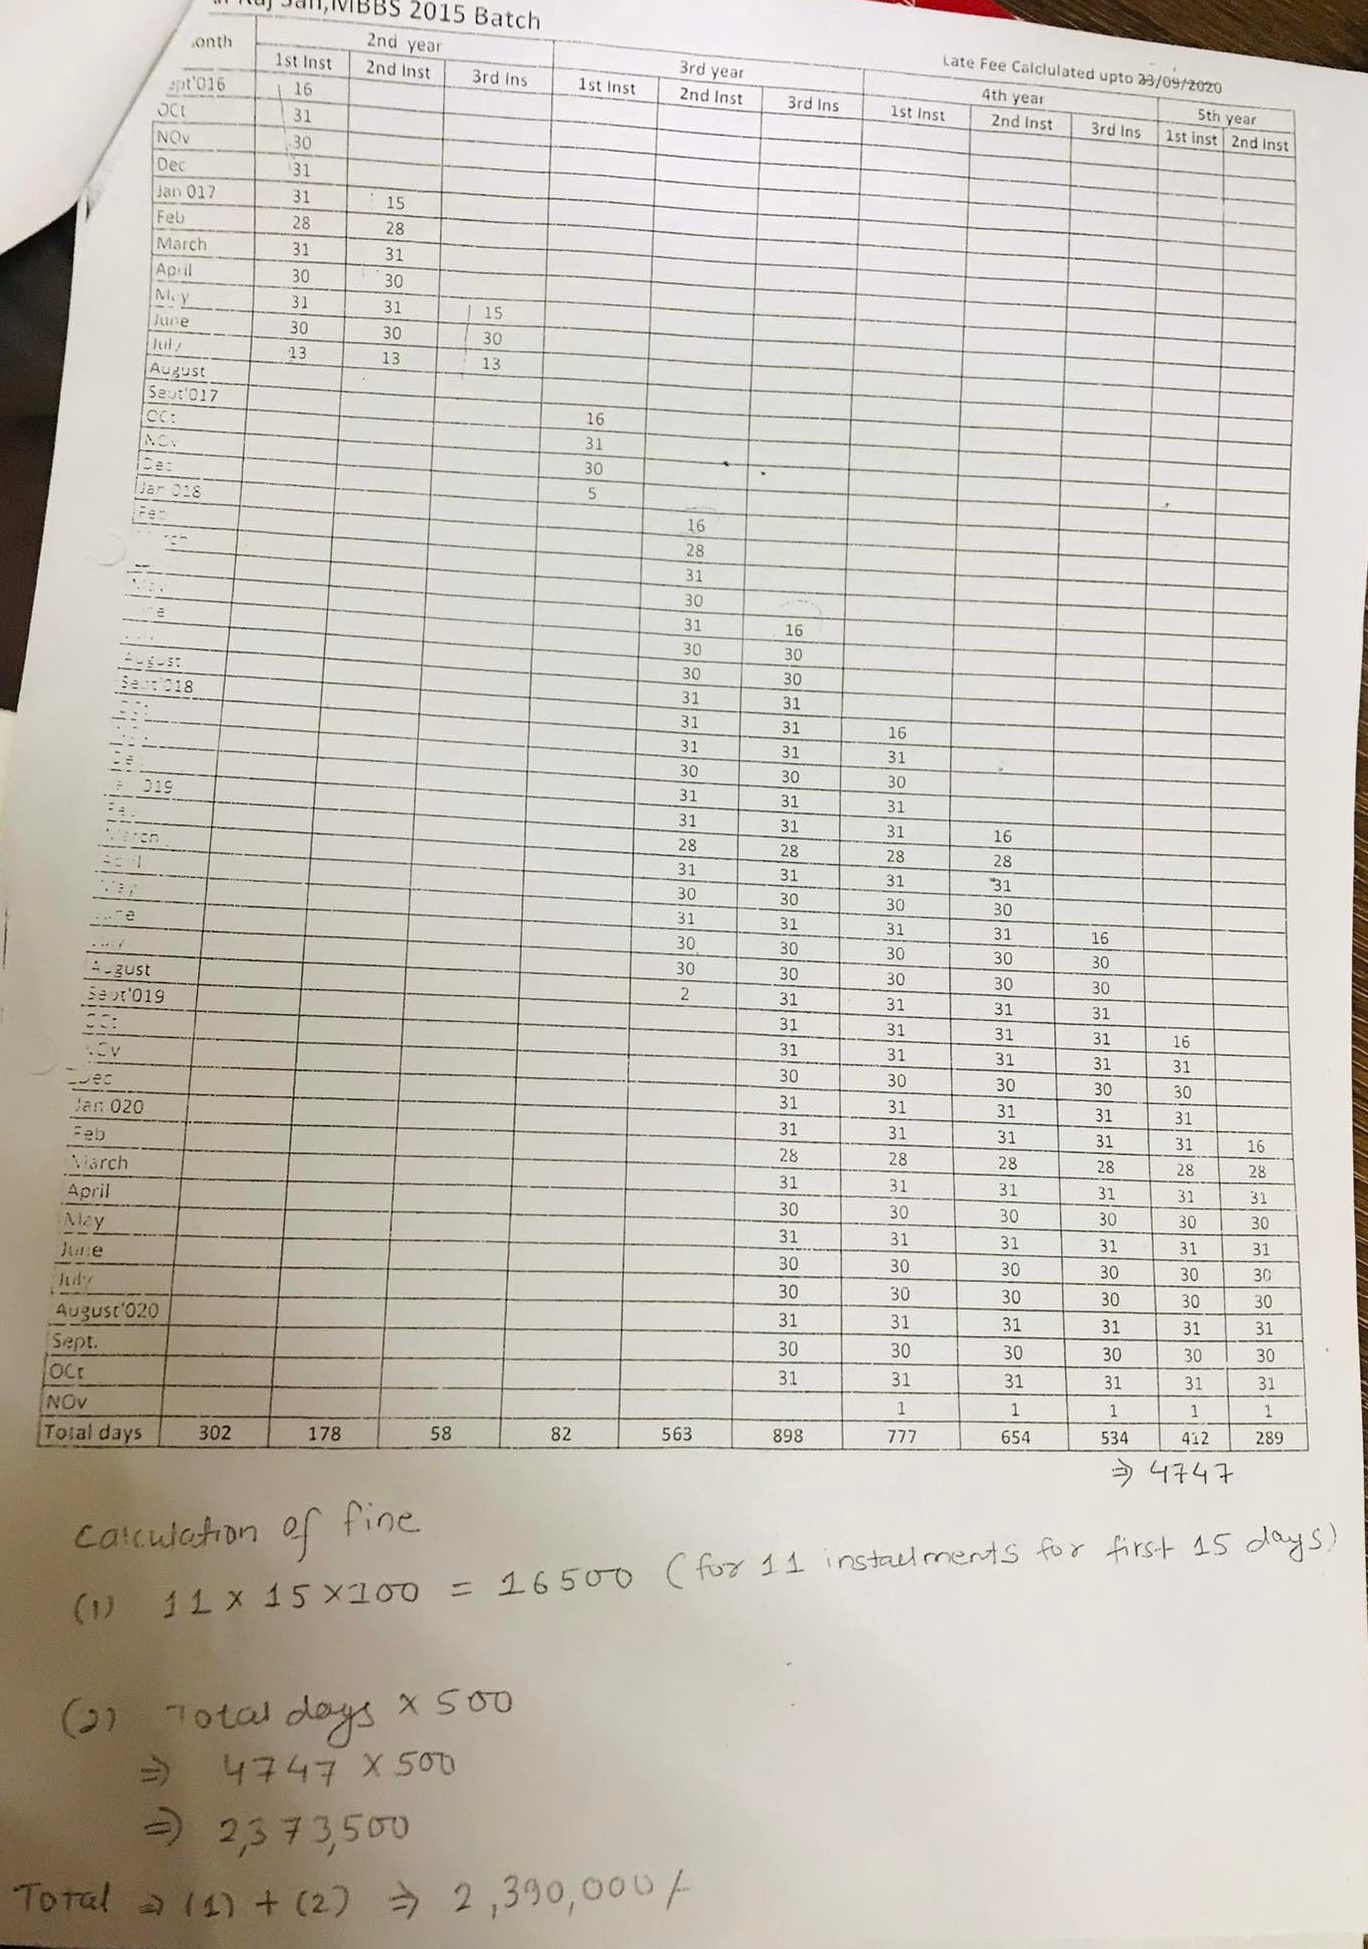 MBBS 2015 Batch
Late Fee Calclulated upto 23/09/2020
2nd year 3rd year 4th year 5th year
1st Inst 2nd Inst 3rd Ins 1st Inst 2nd Inst 3rd Ins 1st Inst 2nd Inst 3rd Ins 1st inst 2nd Inst
16
OCt 31
NOv 30
Dec 31
Jan 017 31 15
Feb 28 28
March 31 31
April 30 30
May 31 31 15
June 30 30 30
July 13 13 13
August
Sept'017 16
OCt 31
NOv 30
Dec 5
Jan 018 16
Feb 28
31
30
31 16
30 30
30 30
August 31 31
Sept'018 31 31 16
31 31 31
30 30 30
31 31 31
019 31 31 31 16
28 28 28 28
March 31 31 31 31
30 30 30 30
May 31 31 31 31 16
30 30 30 30 30
30 30 30 30 30
August 2 31 31 31 31
Sept'019 31 31 31 31 16
OCt 31 31 31 31 31
NOv 30 30 30 30 30
Dec 31 31 31 31 31
Jan 020 31 31 31 31 31 16
Feb 28 28 28 28 28 28
March 31 31 31 31 31 31
April 30 30 30 30 30 30
May 31 31 31 31 31 31
June 30 30 30 30 30 30
July 30 30 30 30 30 30
August'020 31 31 31 31 31 31
Sept. 30 30 30 30 30 30
OCt 31 31 31 31 31 31
NOv 1 1 1 1 1
Total days 302 178 58 82 563 898 777 654 534 412 289
⇒ 4747
Calculation of fine
(1) 11 x 15 x 100 = 16500 (for 11 installments for first 15 days)
(2) Total days x 500
⇒ 4747 x 500
⇒ 2,373,500
Total ⇒ (1) + (2) ⇒ 2,390,000/-